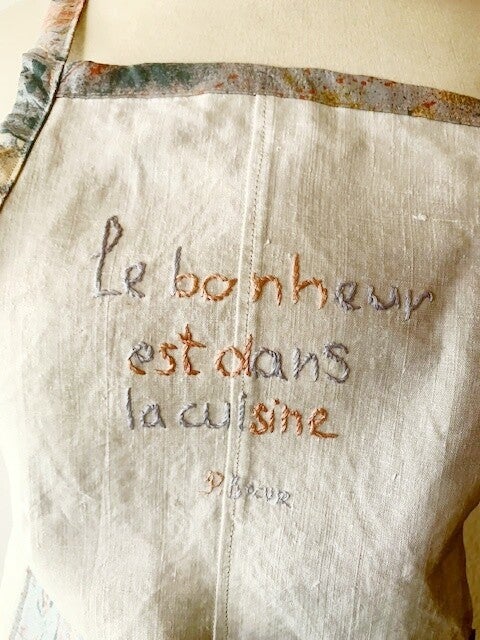 Le bonheur
est dans
la cuisine
P Bocuse